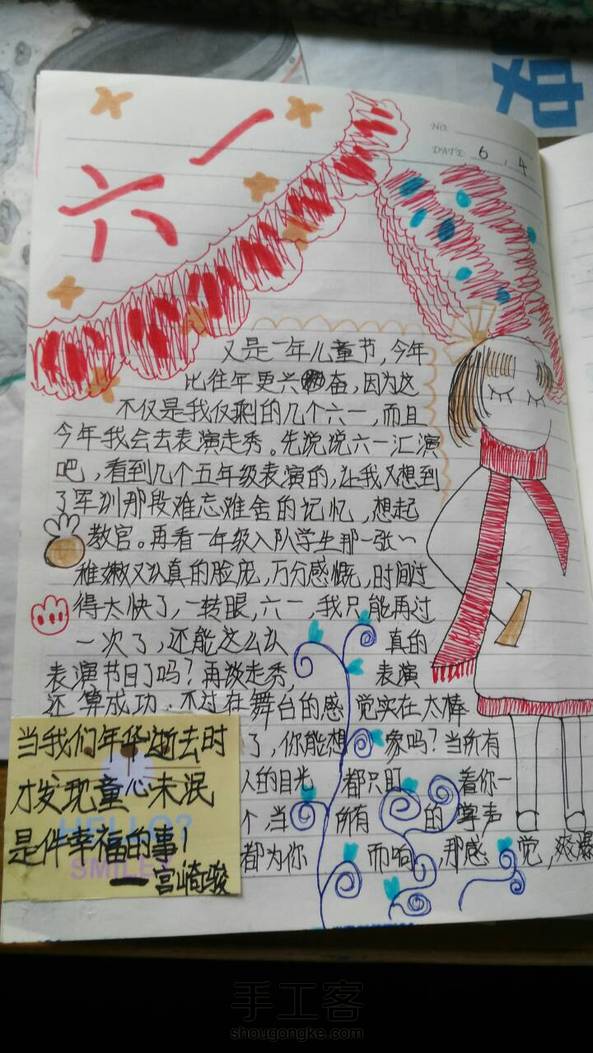 六一
NO.
DATE 6 . 4
又是一年儿童节,今年
比往年更兴奋,因为这
不仅是我仅剩的几个六一,而且
今年我会去表演走秀。先说说六一汇演
吧,看到几个五年级表演的,让我又想到
了军训那段难忘难舍的记忆,想起
教官。再看一年级入队学生那一张~
稚嫩又认真的脸庞,万分感慨,时间过
得太快了,一转眼,六一,我只能再过
一次了,还能这么认真的
表演节目了吗?再谈走秀,表演
还算成功.不过在舞台的感觉实在太棒
了,你能想象吗?当所有
人的目光都只盯着你一
个,当所有的掌声
都为你而响,那感觉,爽爆
当我们年华逝去时
才发现童心未泯
是件幸福的事!
——宫崎骏
HELLO?
SMILEY
手工客
shougongke.com